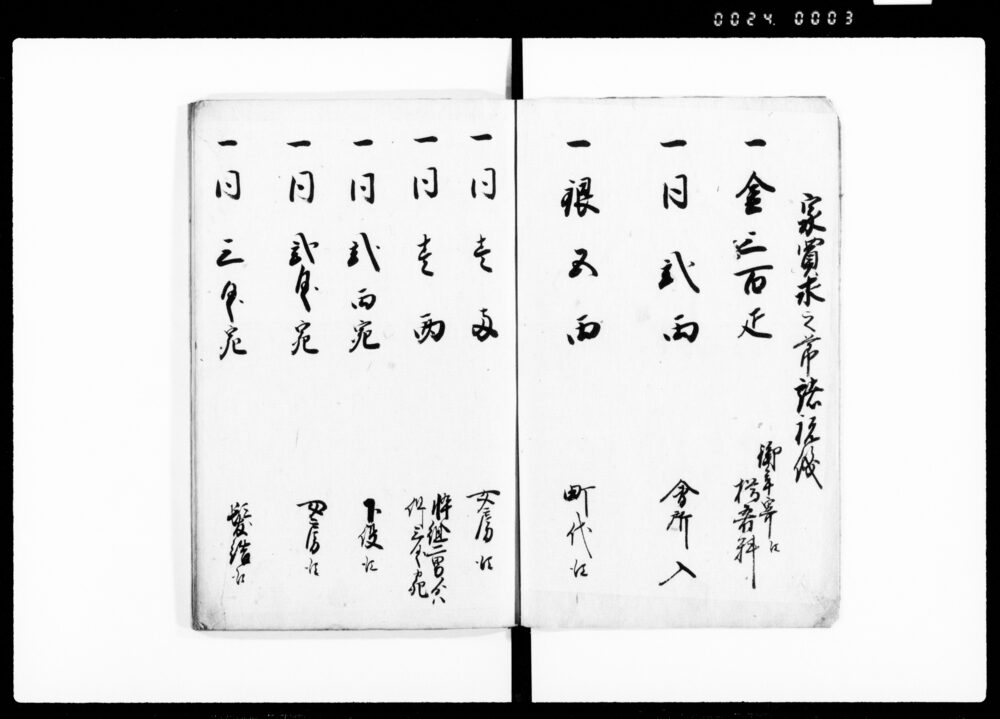 0024. 0003
家買求之節諸祝儀
一金三百疋
御年寄江
樽肴料
一同弐両
会所入
一銀五両
町代江
一同壱両
女房江
一同壱両
忰組二男
一同弐両宛
下役江
一同弐匁宛
女房江
一同三匁宛
髪結江